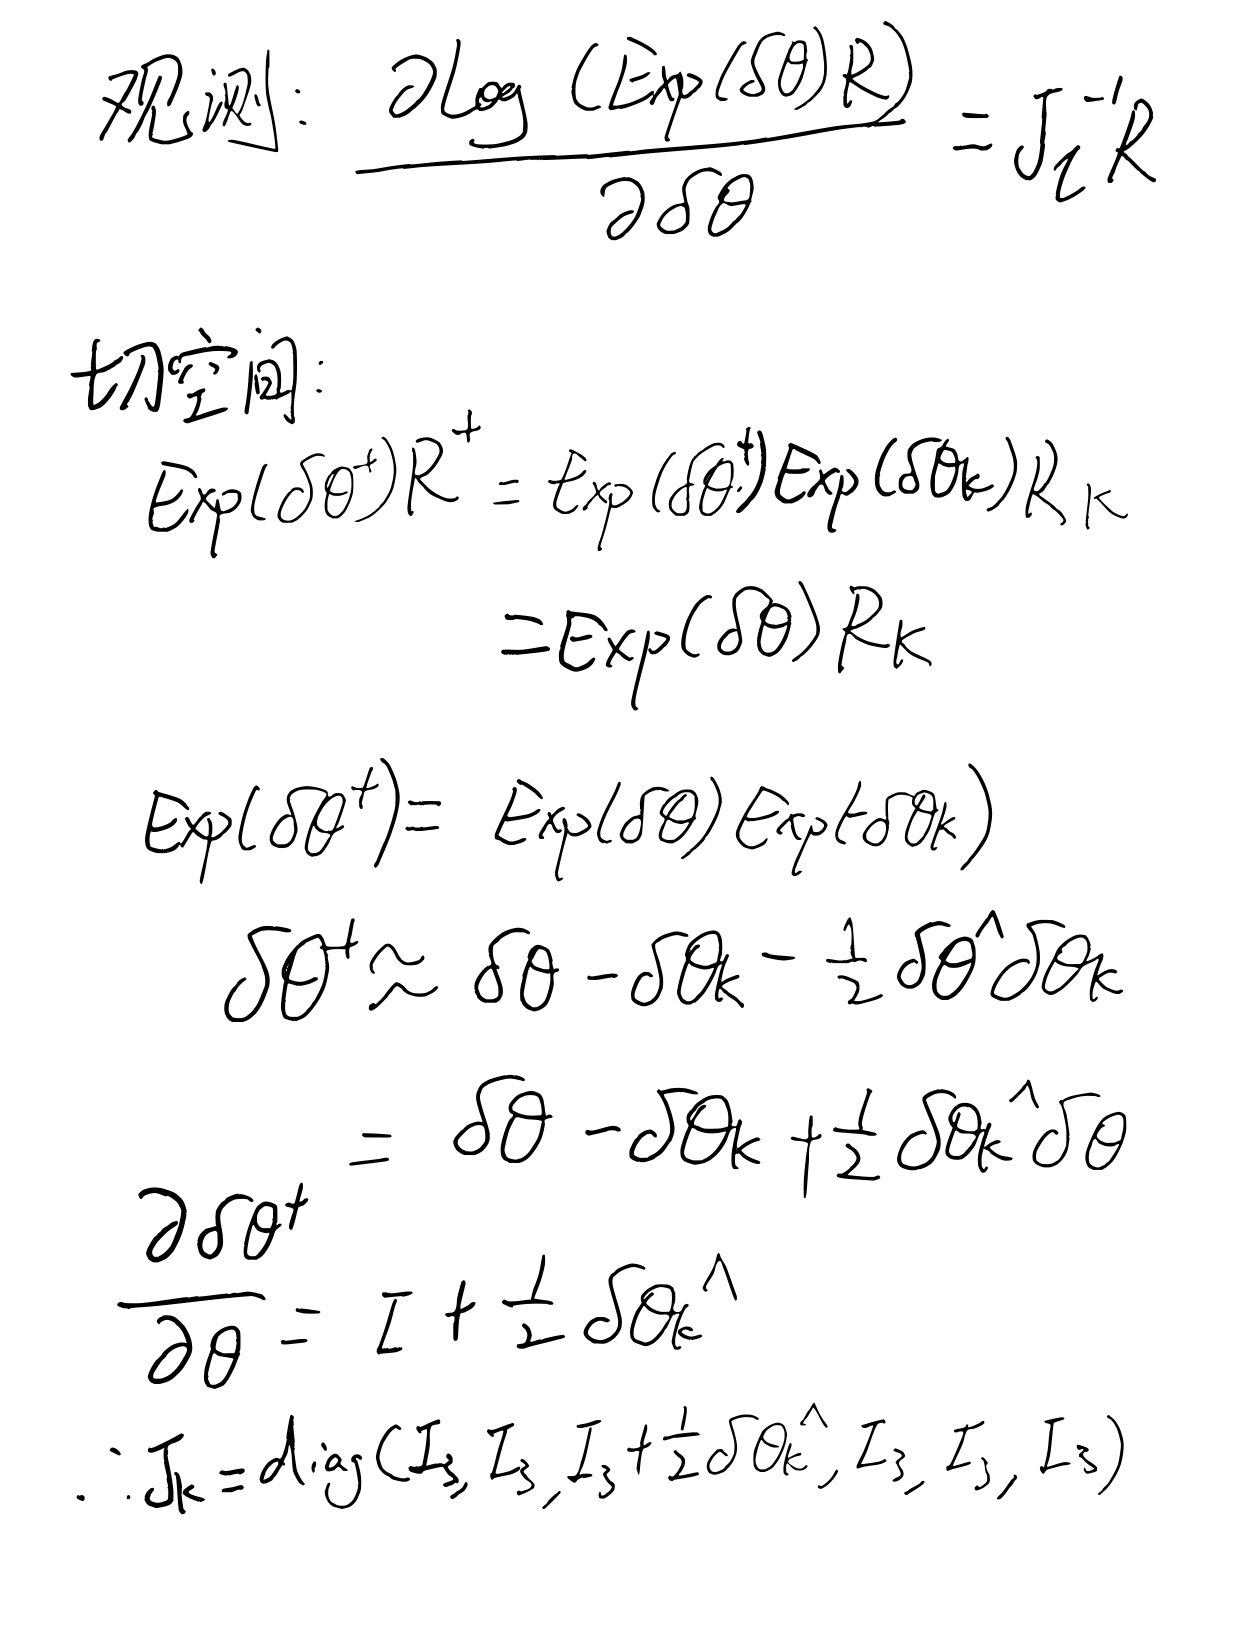 观测: ∂Log(Exp(δθ)R) / ∂δθ = J_l^{-1}R
切空间:
Exp(δθ^+)R^+ = Exp(δθ^+)Exp(δθ_k)R_K
=Exp(δθ)R_K
Exp(δθ^+)= Exp(δθ)Exp(-δθ_k)
δθ^+ ≈ δθ - δθ_k - 1/2 δθ^∧ δθ_k
= δθ - δθ_k + 1/2 δθ_k^∧ δθ
∂δθ^+ / ∂θ = I + 1/2 δθ_k^∧
∴ J_k = diag(I_3, I_3, I_3 + 1/2 δθ_k^∧, I_3, I_3, I_3)